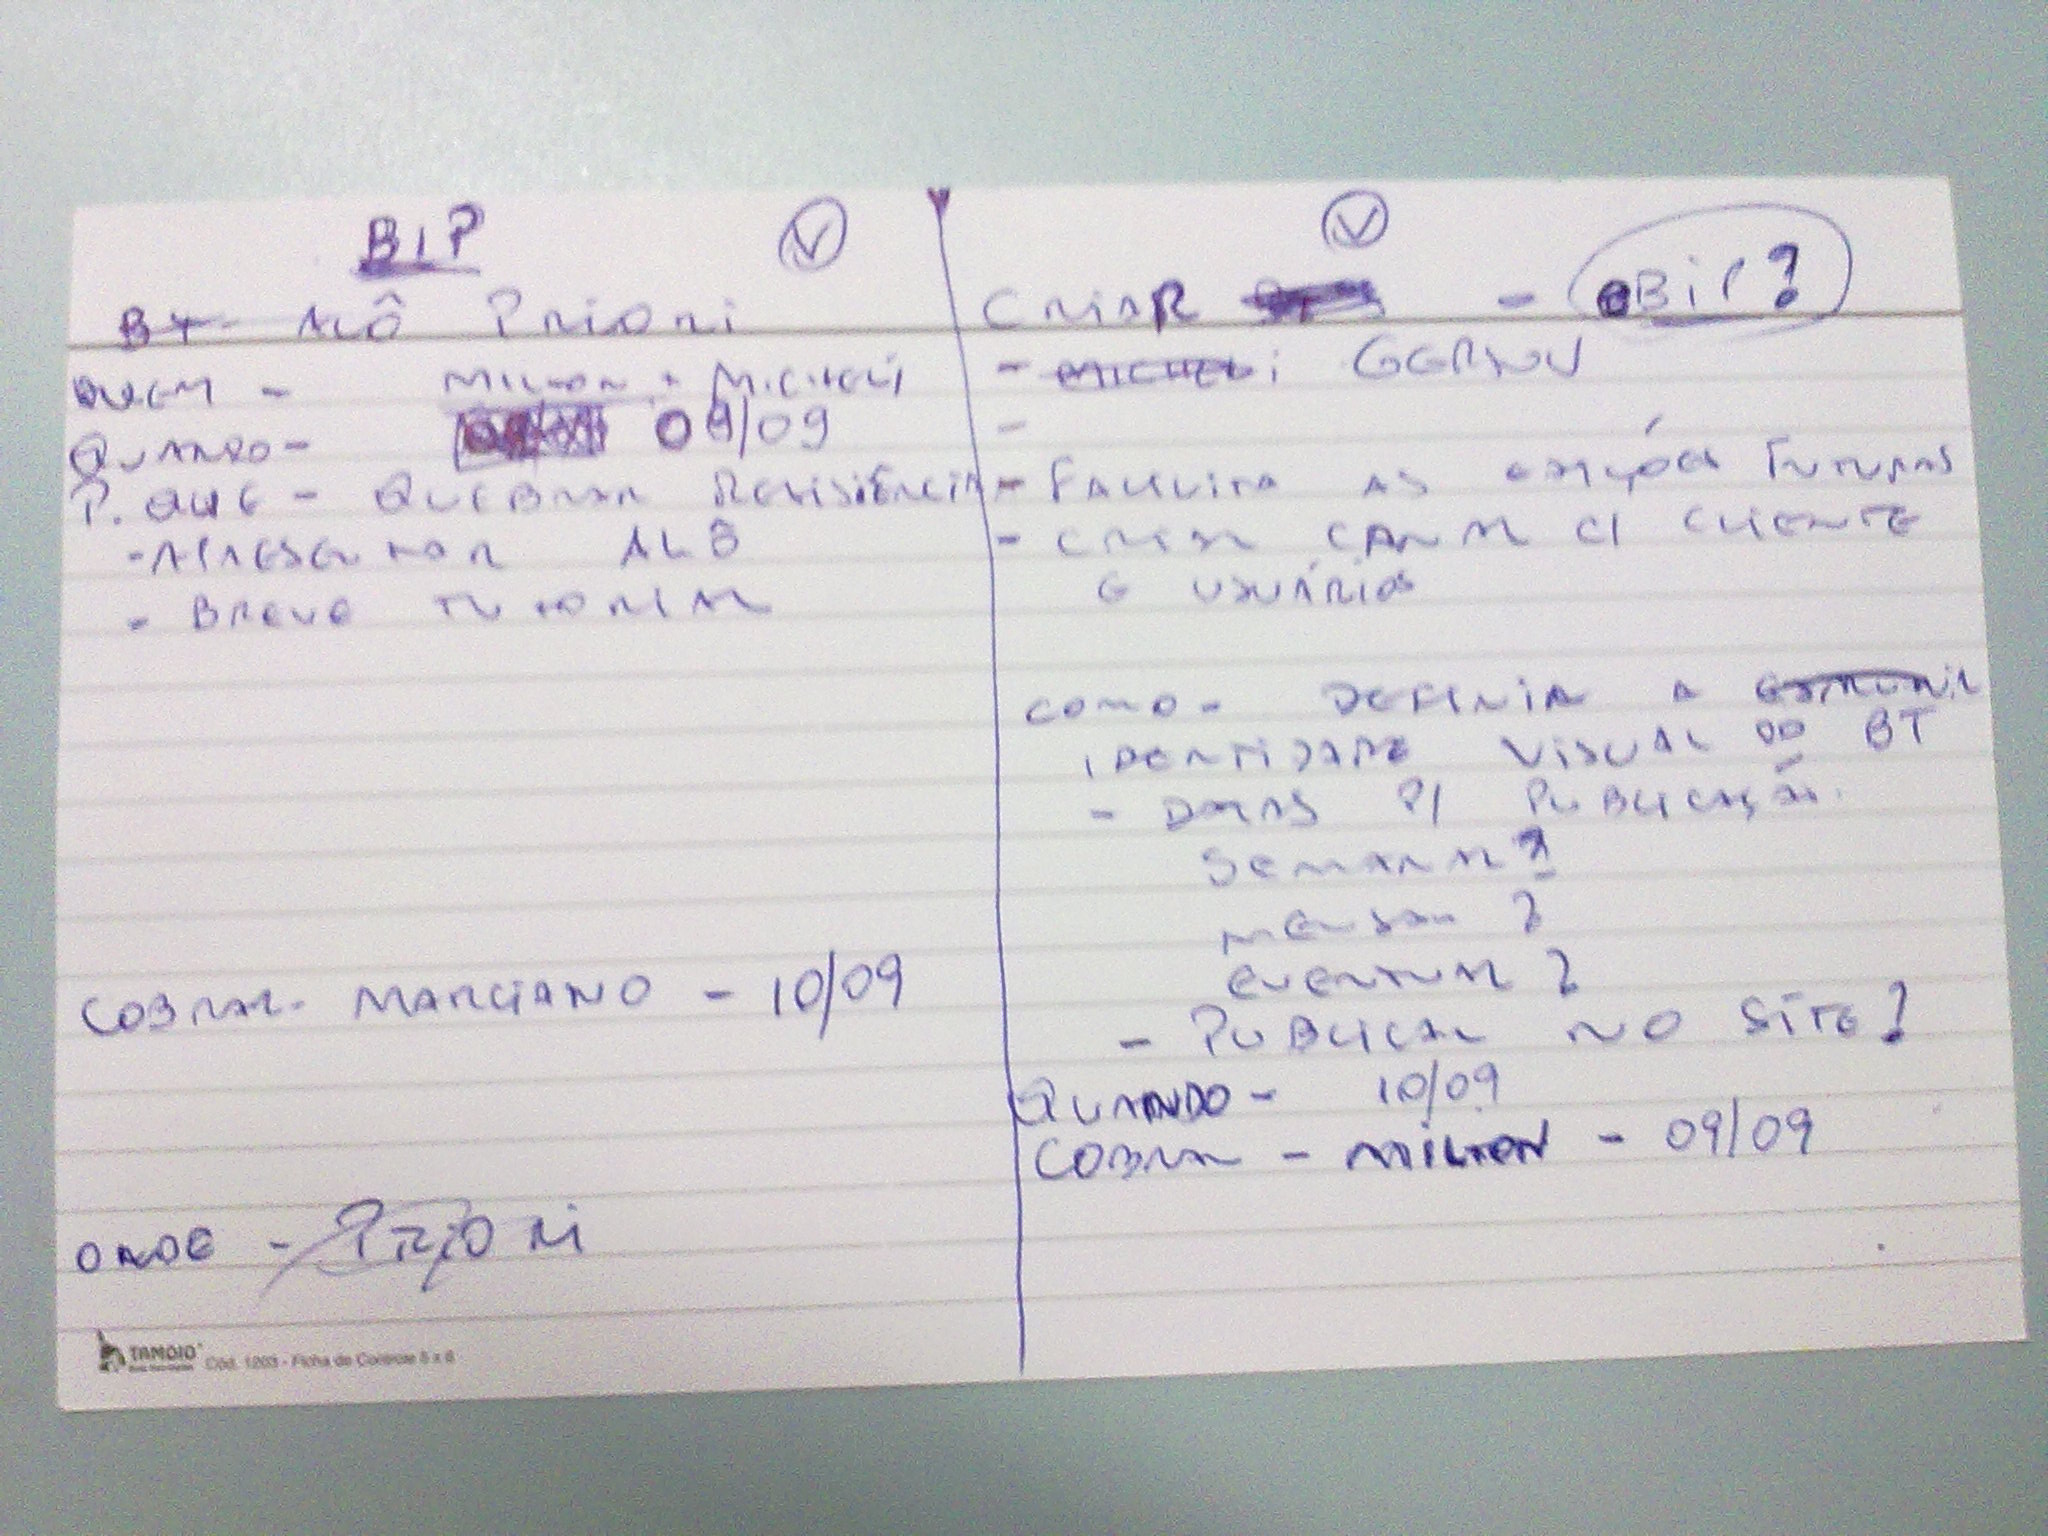 BIP
BT- ALÔ PRIORI
QUEM - MILTON + MICHELI
QUANDO - 09/09
P. QUE - QUEBRAR RESISTÊNCIA
- APRESENTAR ALÔ
- BREVE TUTORIAL
COBRAR- MARCIANO - 10/09
ONDE - PRIORI
TAMOIO
Cód. 1203 - Ficha de Controle 5 x 8
CRIAR - BIP?
- MICHELI GERSON
-
- FACILITA AS EDIÇÕES FUTURAS
- CRIAR CANAL C/ CLIENTE
E USUÁRIOS
COMO - DEFINIR A
IDENTIDADE VISUAL DO BT
- DATAS P/ PUBLICAÇÃO.
SEMANAL?
MENSAL?
EVENTUAL?
- PUBLICAR NO SITE?
QUANDO - 10/09
COBRAR - MILTON - 09/09